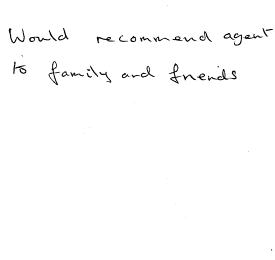 Would recommend agent
to family and friends